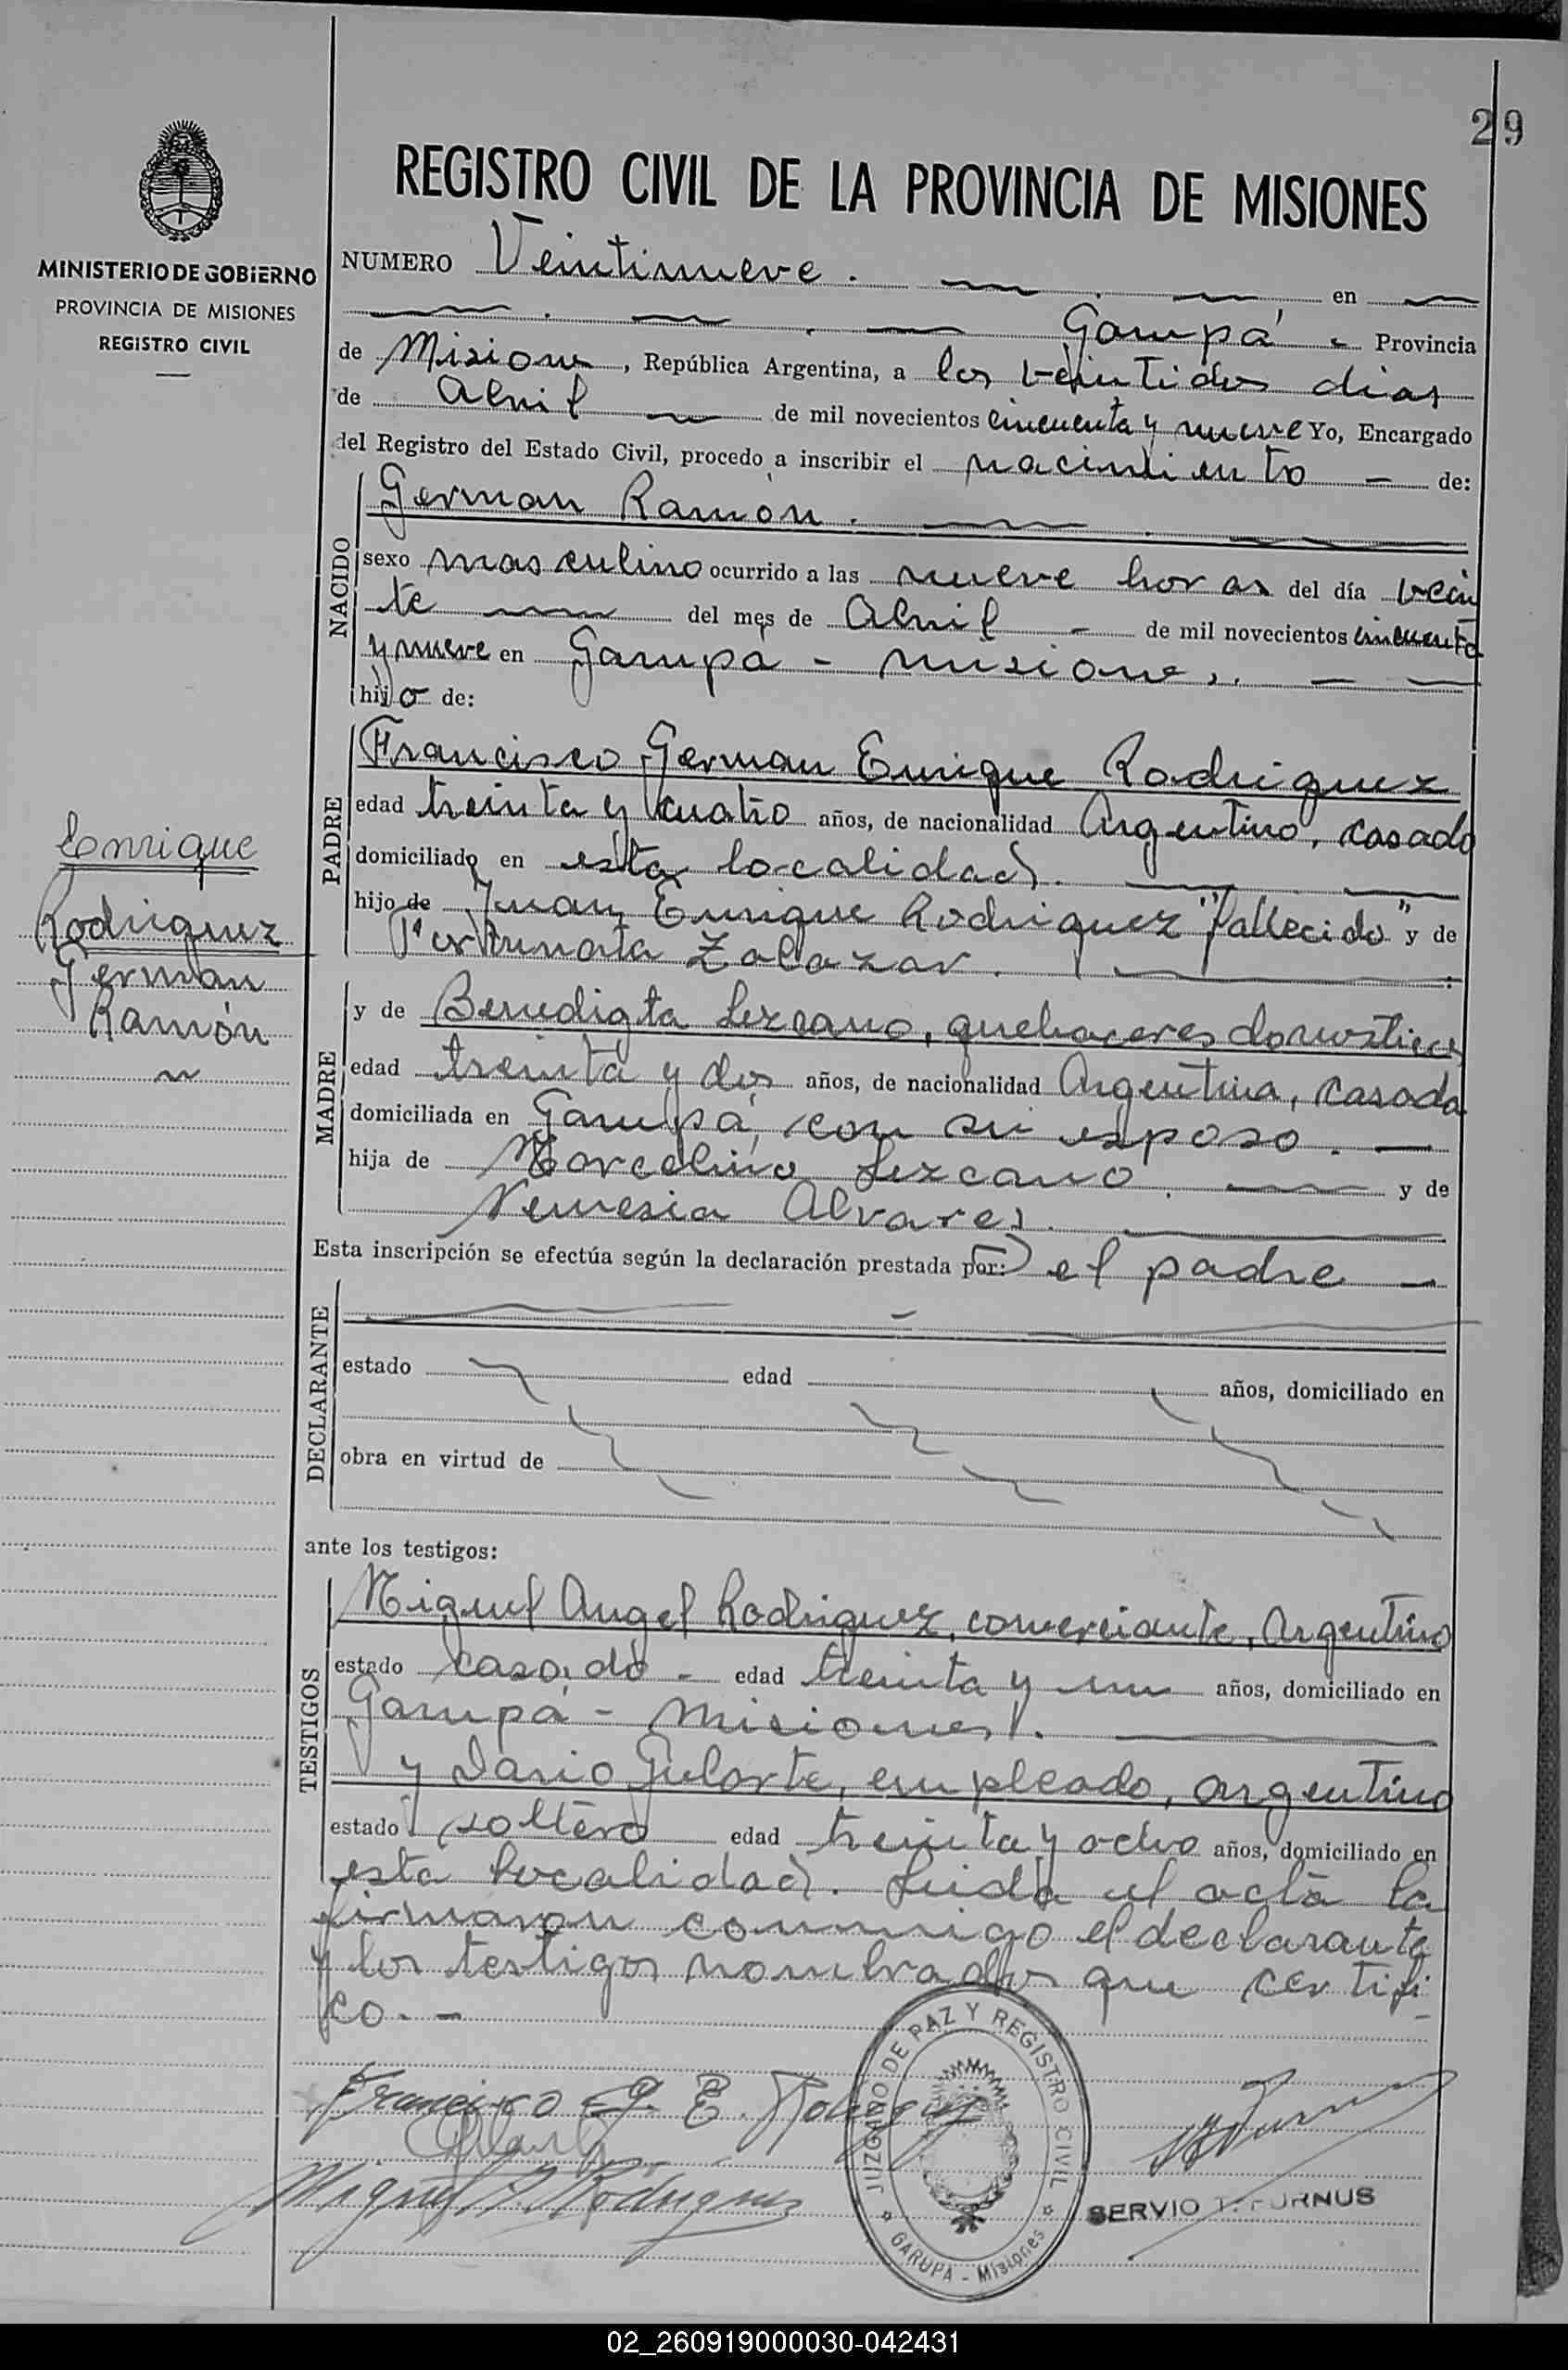 29
REGISTRO CIVIL DE LA PROVINCIA DE MISIONES
MINISTERIO DE GOBIERNO
PROVINCIA DE MISIONES
REGISTRO CIVIL
NUMERO Veintinueve. en
Garupá - Provincia
de Misiones, República Argentina, a los veintidos dias
de Abril de mil novecientos cincuenta y nueve Yo, Encargado
del Registro del Estado Civil, procedo a inscribir el nacimiento - de:
NACIDO
German Ramón.
sexo masculino ocurrido a las nueve horas del día vein
te del mes de Abril - de mil novecientos cincuenta
y nueve en Garupá - Misiones.
hijo de:
PADRE
Francisco German Enrique Rodriguez
edad treinta y cuatro años, de nacionalidad Argentino, casado
domiciliado en esta localidad.
hijo de Juan Enrique Rodriguez "fallecido" y de
Fortunata Zalazar.
Enrique
Rodriguez
German
Ramón
MADRE
y de Benedigta Lezcano, quehaceres domesticos
edad treinta y dos años, de nacionalidad Argentina, casada
domiciliada en Garupá, con su esposo. -
hija de Marcelino Lezcano. y de
Nemesia Alvares.
Esta inscripción se efectúa según la declaración prestada por: el padre -
DECLARANTE
estado edad años, domiciliado en
obra en virtud de
ante los testigos:
TESTIGOS
Miguel Angel Rodriguez, comerciante, Argentino
estado casado - edad treinta y un años, domiciliado en
Garupá - Misiones.
y Dario Gularte, empleado, argentino
estado soltero edad treinta y ocho años, domiciliado en
esta localidad. Leida el acta la
firmaron conmigo el declarante
y los testigos nombrados que certifi-
co. -
Francisco G. E. Rodriguez
Miguel A. Rodriguez
JUZGADO DE PAZ Y REGISTRO CIVIL
GARUPA - Misiones
SERVIO T. FURNUS
02_260919000030-042431